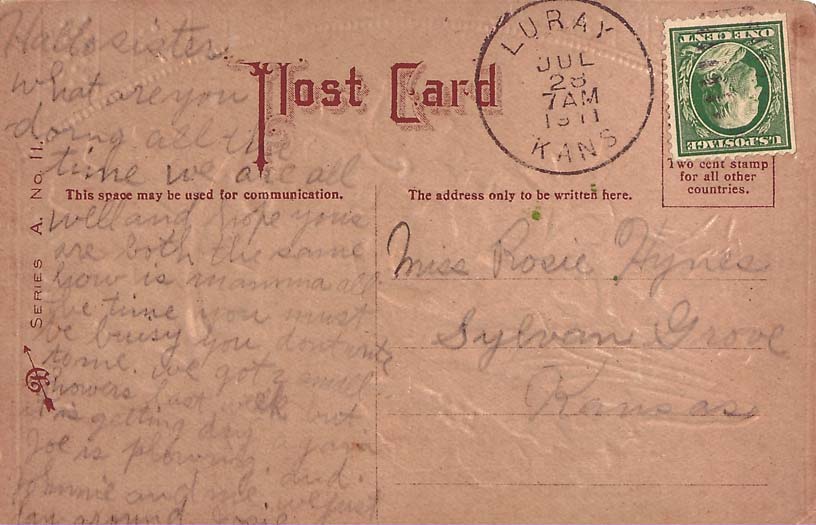 Hallo sister
what are you
doing all the
time we are all
well and hope yous
are both the same
how is mamma all
the time you must
be busy you dont write
to me. we got a small
showers last week but
it is getting dry again
Joe is plowing. and
Johnnie and me we just
lay around
Post Card
This space may be used for communication.
The address only to be written here.
SERIES A. No. 11.
LURAY
JUL
28
7AM
1911
KANS
U.S. POSTAGE
ONE CENT
Two cent stamp
for all other
countries.
Miss Rosie Hynes
Sylvan Grove
Kansas